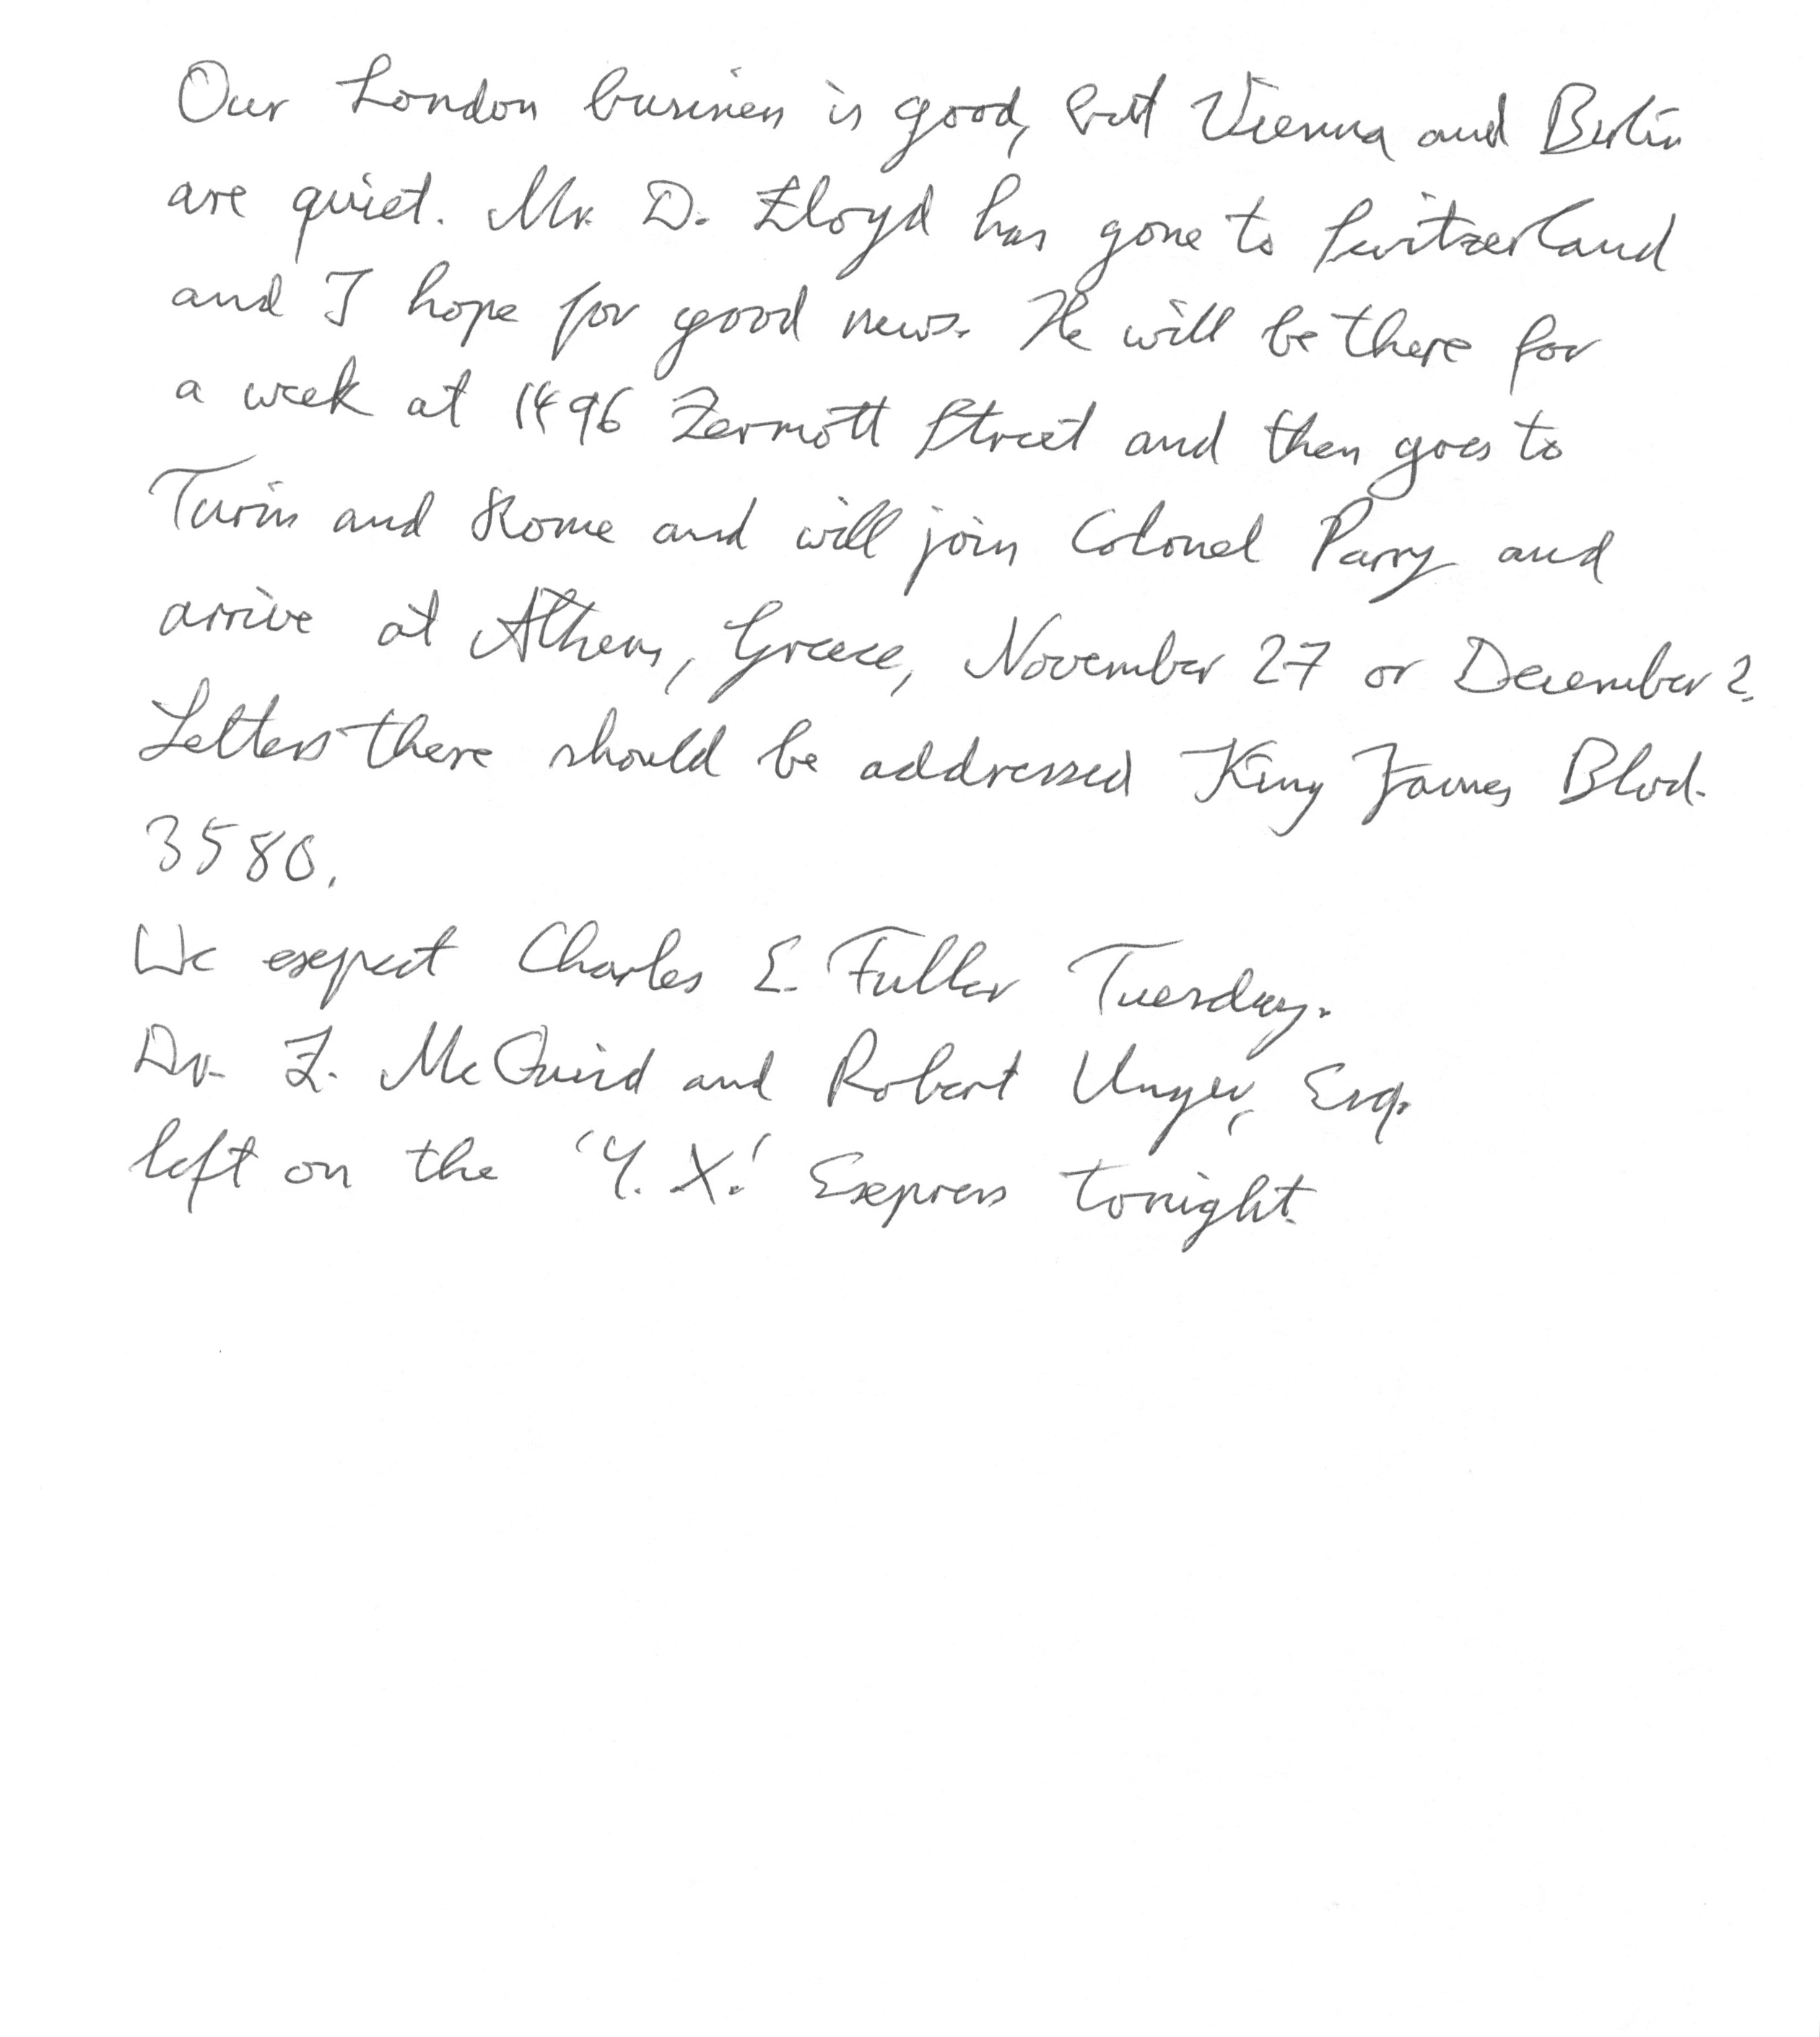 Our London business is good, but Vienna and Berlin
are quiet. Mr. D. Lloyd has gone to Switzerland
and I hope for good news. He will be there for
a week at 1496 Zermott Street and then goes to
Turin and Rome and will join Colonel Parry and
arrive at Athens, Greece, November 27 or December 2.
Letters there should be addressed King James Blvd.
3580.
We expect Charles E. Fuller Tuesday.
Dr. L. McQuaid and Robert Unger, Esq.
left on the 'Y. X.' Express tonight.